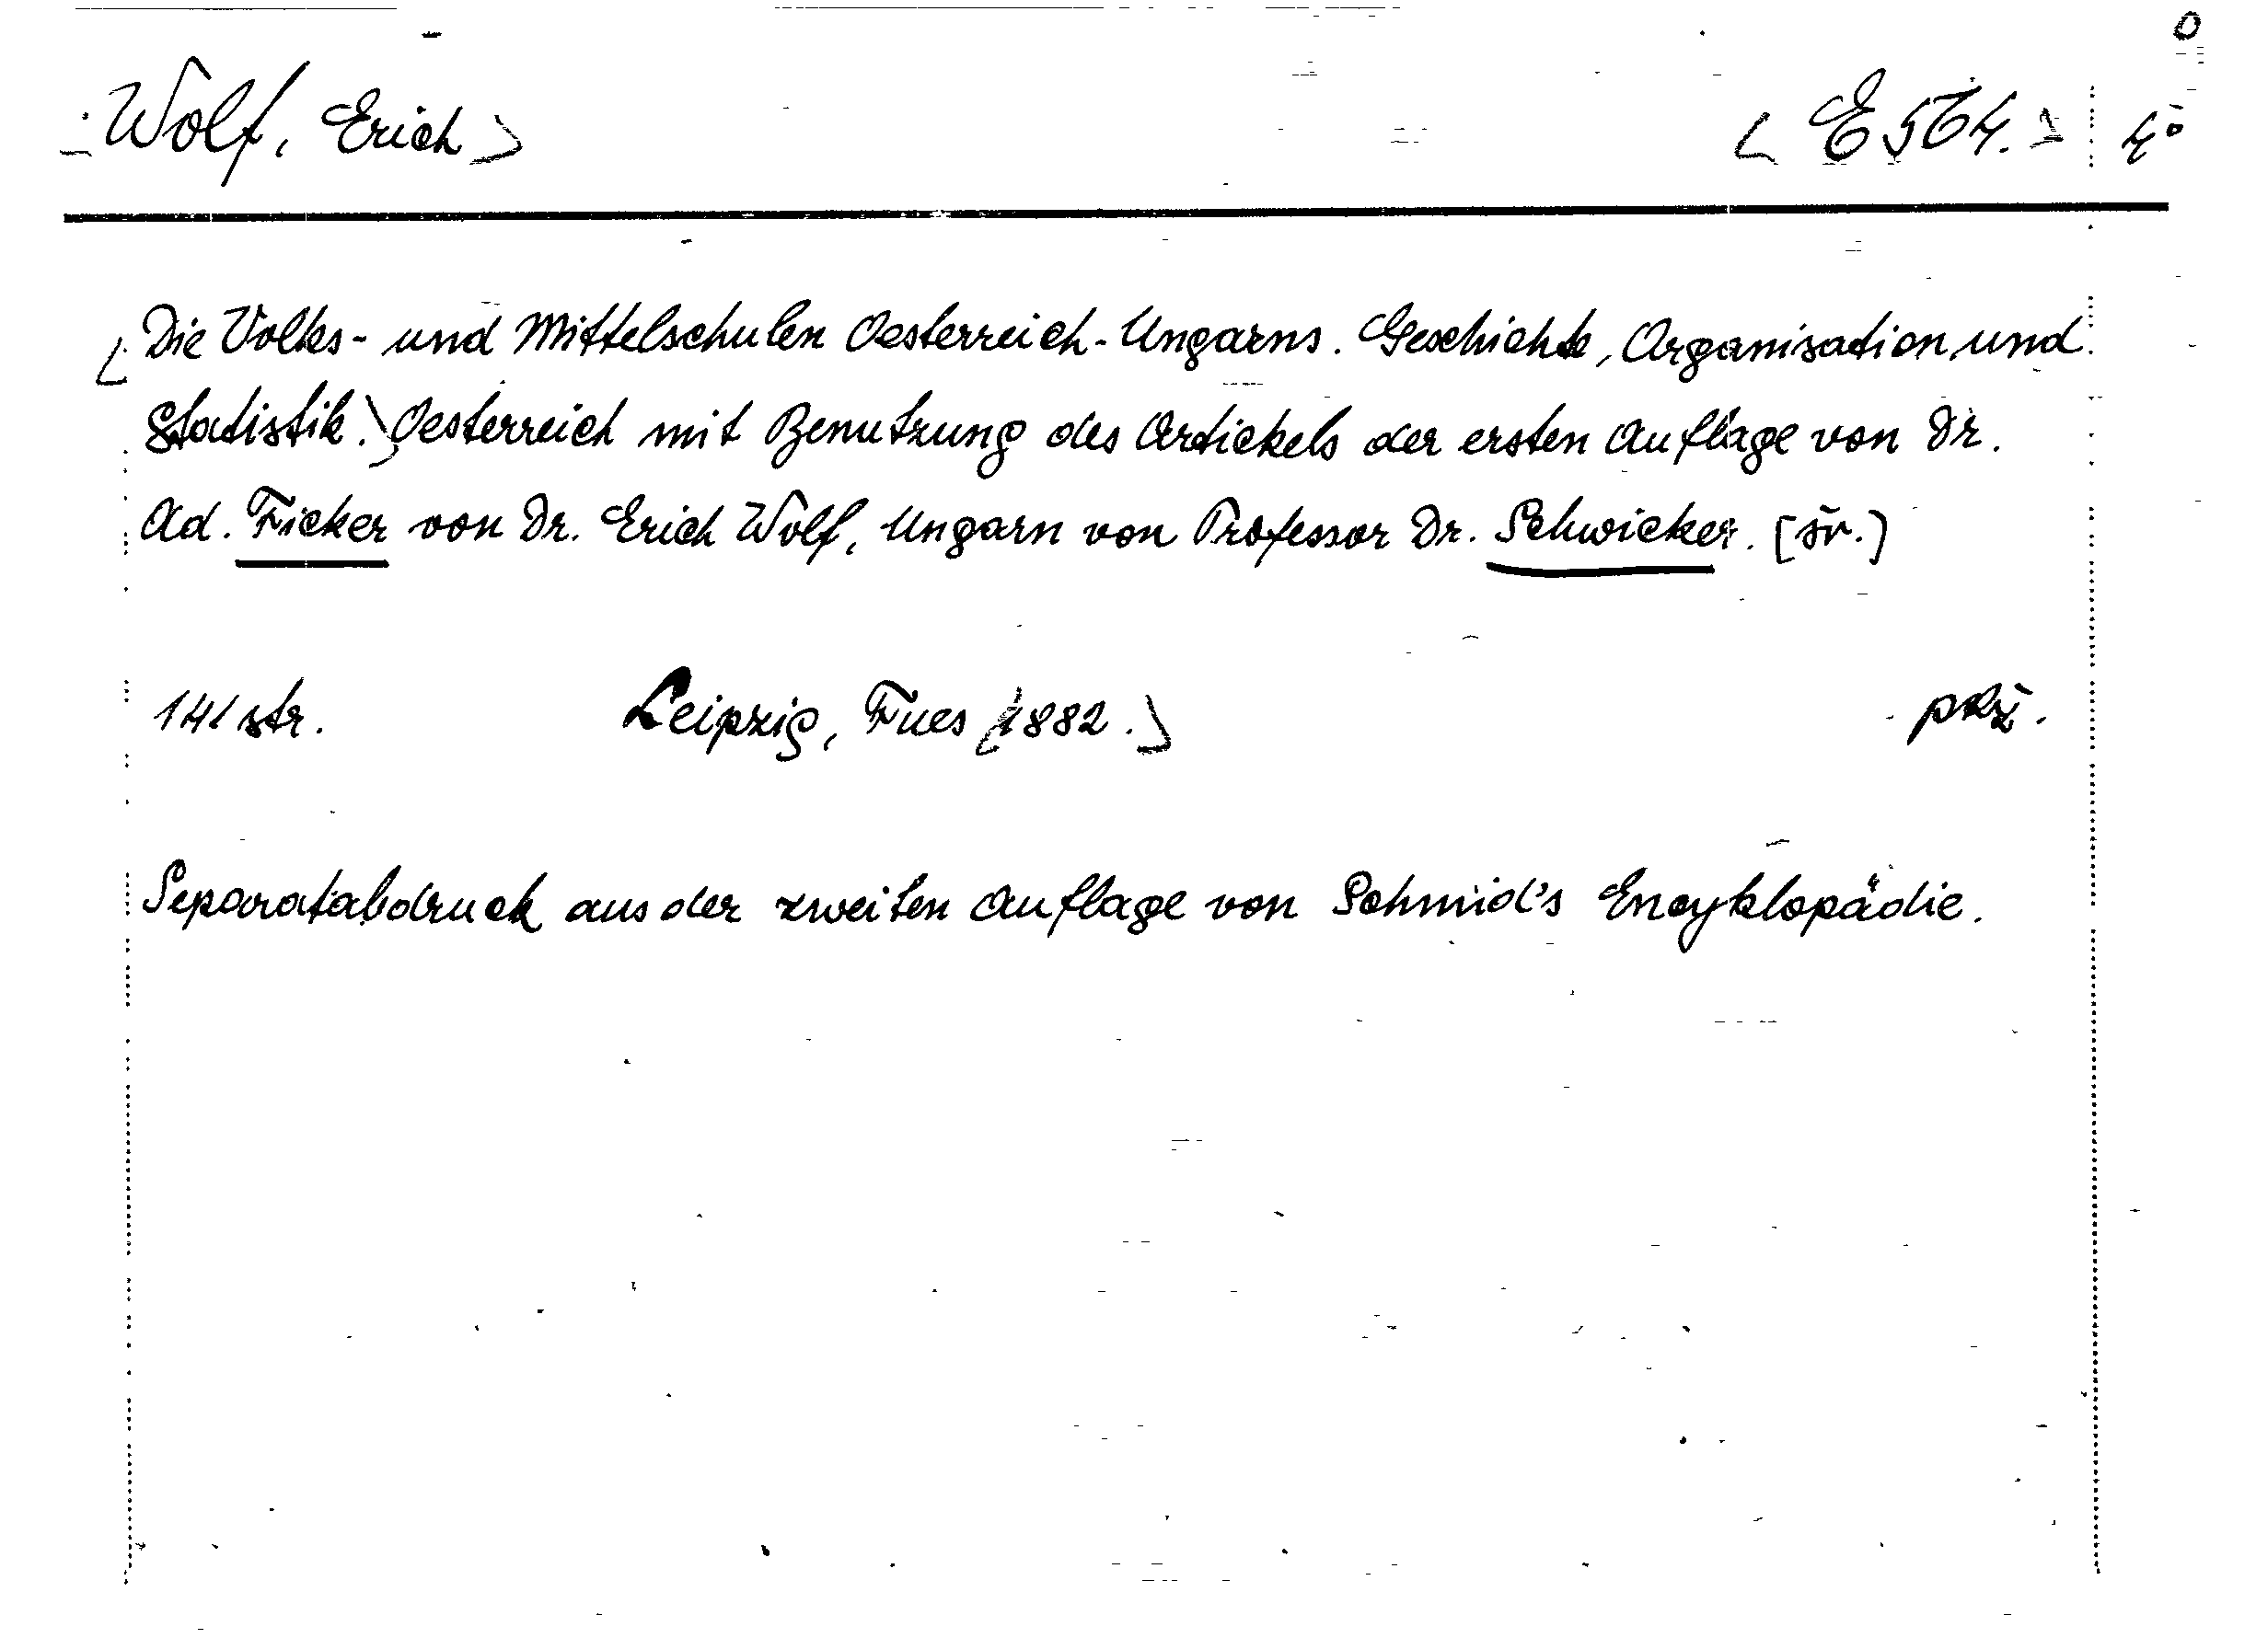 Wolf, Erich > < E 564. > 4°
[Die Volks- und Mittelschulen Oesterreich-Ungarns. Geschichte, Organisation und
Statistik.] Oesterreich mit Benutzung des Artickels der ersten Auflage von Dr.
Ad. Ficker von Dr. Erich Wolf, Ungarn von Professor Dr. Schwicker. [šv.]
141 str. Leipzig, Fues [1882.]
Separatabdruck aus der zweiten Auflage von Schmid's Encyklopädie.